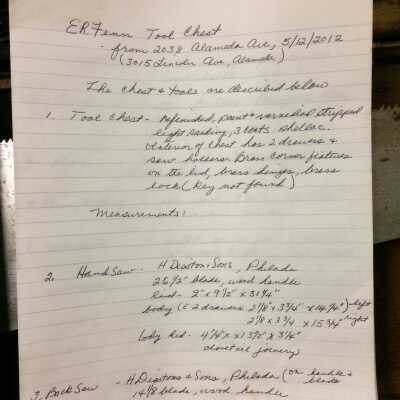 ER Fenn Tool Chest
- from 2038 Alameda Ave, 5/12/2012
(3015 Lincoln Ave, Alameda)
The chest & tools are described below
1. Tool Chest - Refinished, paint & varnish stripped
light sanding, 3 coats shellac.
Interior of chest has 2 drawers &
saw holders. Brass corner fixtures
on the lid, brass hinges, brass
lock (key not found)
Measurements:
2. Hand Saw - H Disston & Sons, Philada
26 1/2" blade, wood handle
lid - 2" x 9 1/2" x 31 1/4"
body (2 drawers 2 1/8" x 3 3/4" x 14 3/4") - left
2 1/8 x 3 3/4 x 15 3/4" right
body lid - x 3 1/4"
dovetail joinery
3. Back Saw - H Disstons & Sons, Philada (on handle &
blade
14 1/8 blade, wood handle